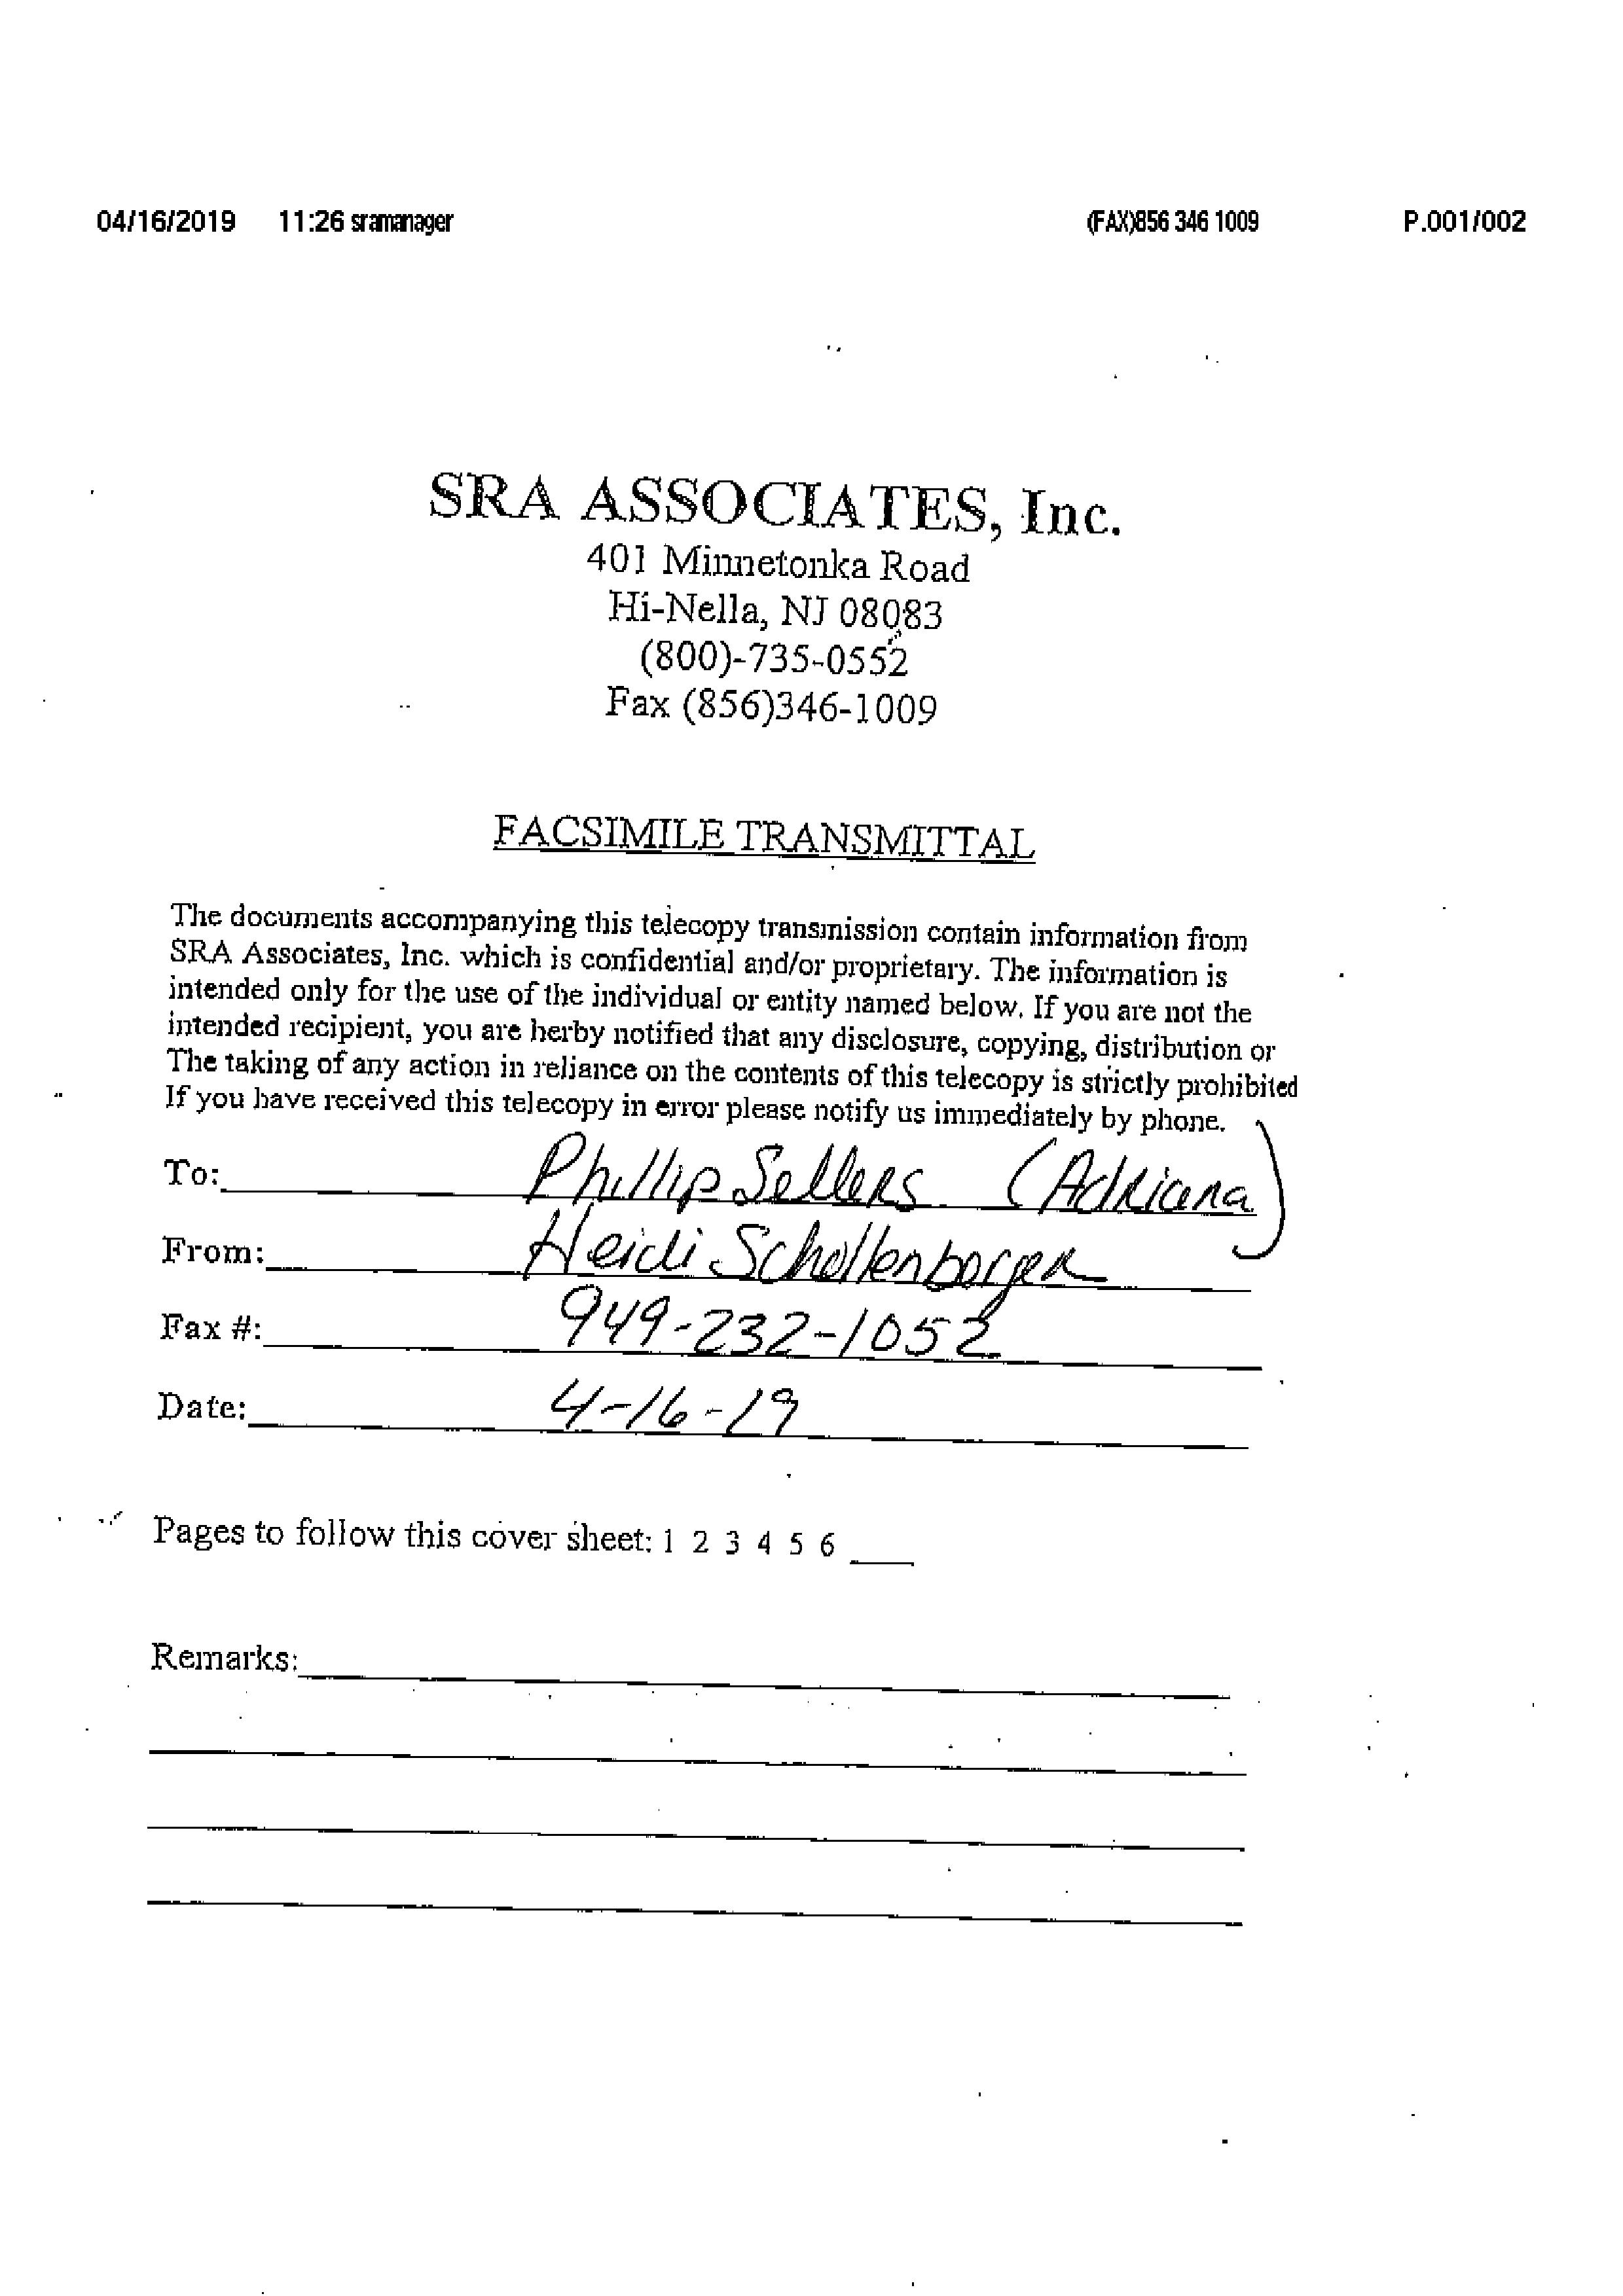 04/16/2019 11:26 sramanager (FAX)856 346 1009 P.001/002
SRA ASSOCIATES, Inc.
401 Minnetonka Road
Hi-Nella, NJ 08083
(800)-735-0552
Fax (856)346-1009
FACSIMILE TRANSMITTAL
The documents accompanying this telecopy transmission contain information from
SRA Associates, Inc. which is confidential and/or proprietary. The information is
intended only for the use of the individual or entity named below. If you are not the
intended recipient, you are herby notified that any disclosure, copying, distribution or
The taking of any action in reliance on the contents of this telecopy is strictly prohibited
If you have received this telecopy in error please notify us immediately by phone.
To: Phillip Sellers (Adriana)
From: Heidi Schollenberger
Fax #: 949-232-1052
Date: 4-16-19
Pages to follow this cover sheet: 1 2 3 4 5 6 ____
Remarks: